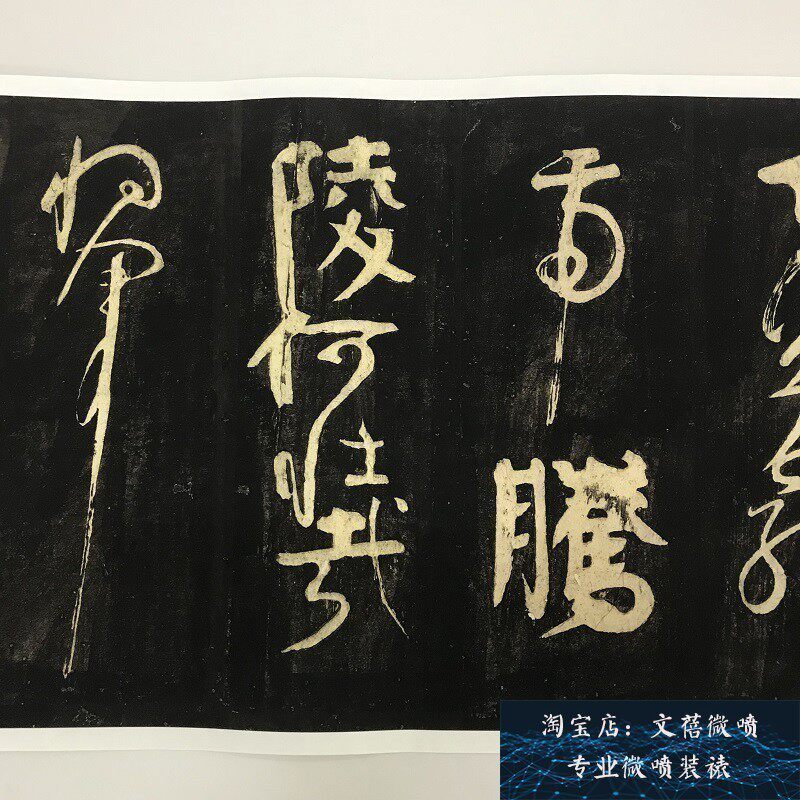 虎騰
陵何壯哉
将軍
淘宝店：文蓓微喷
专业微喷装裱